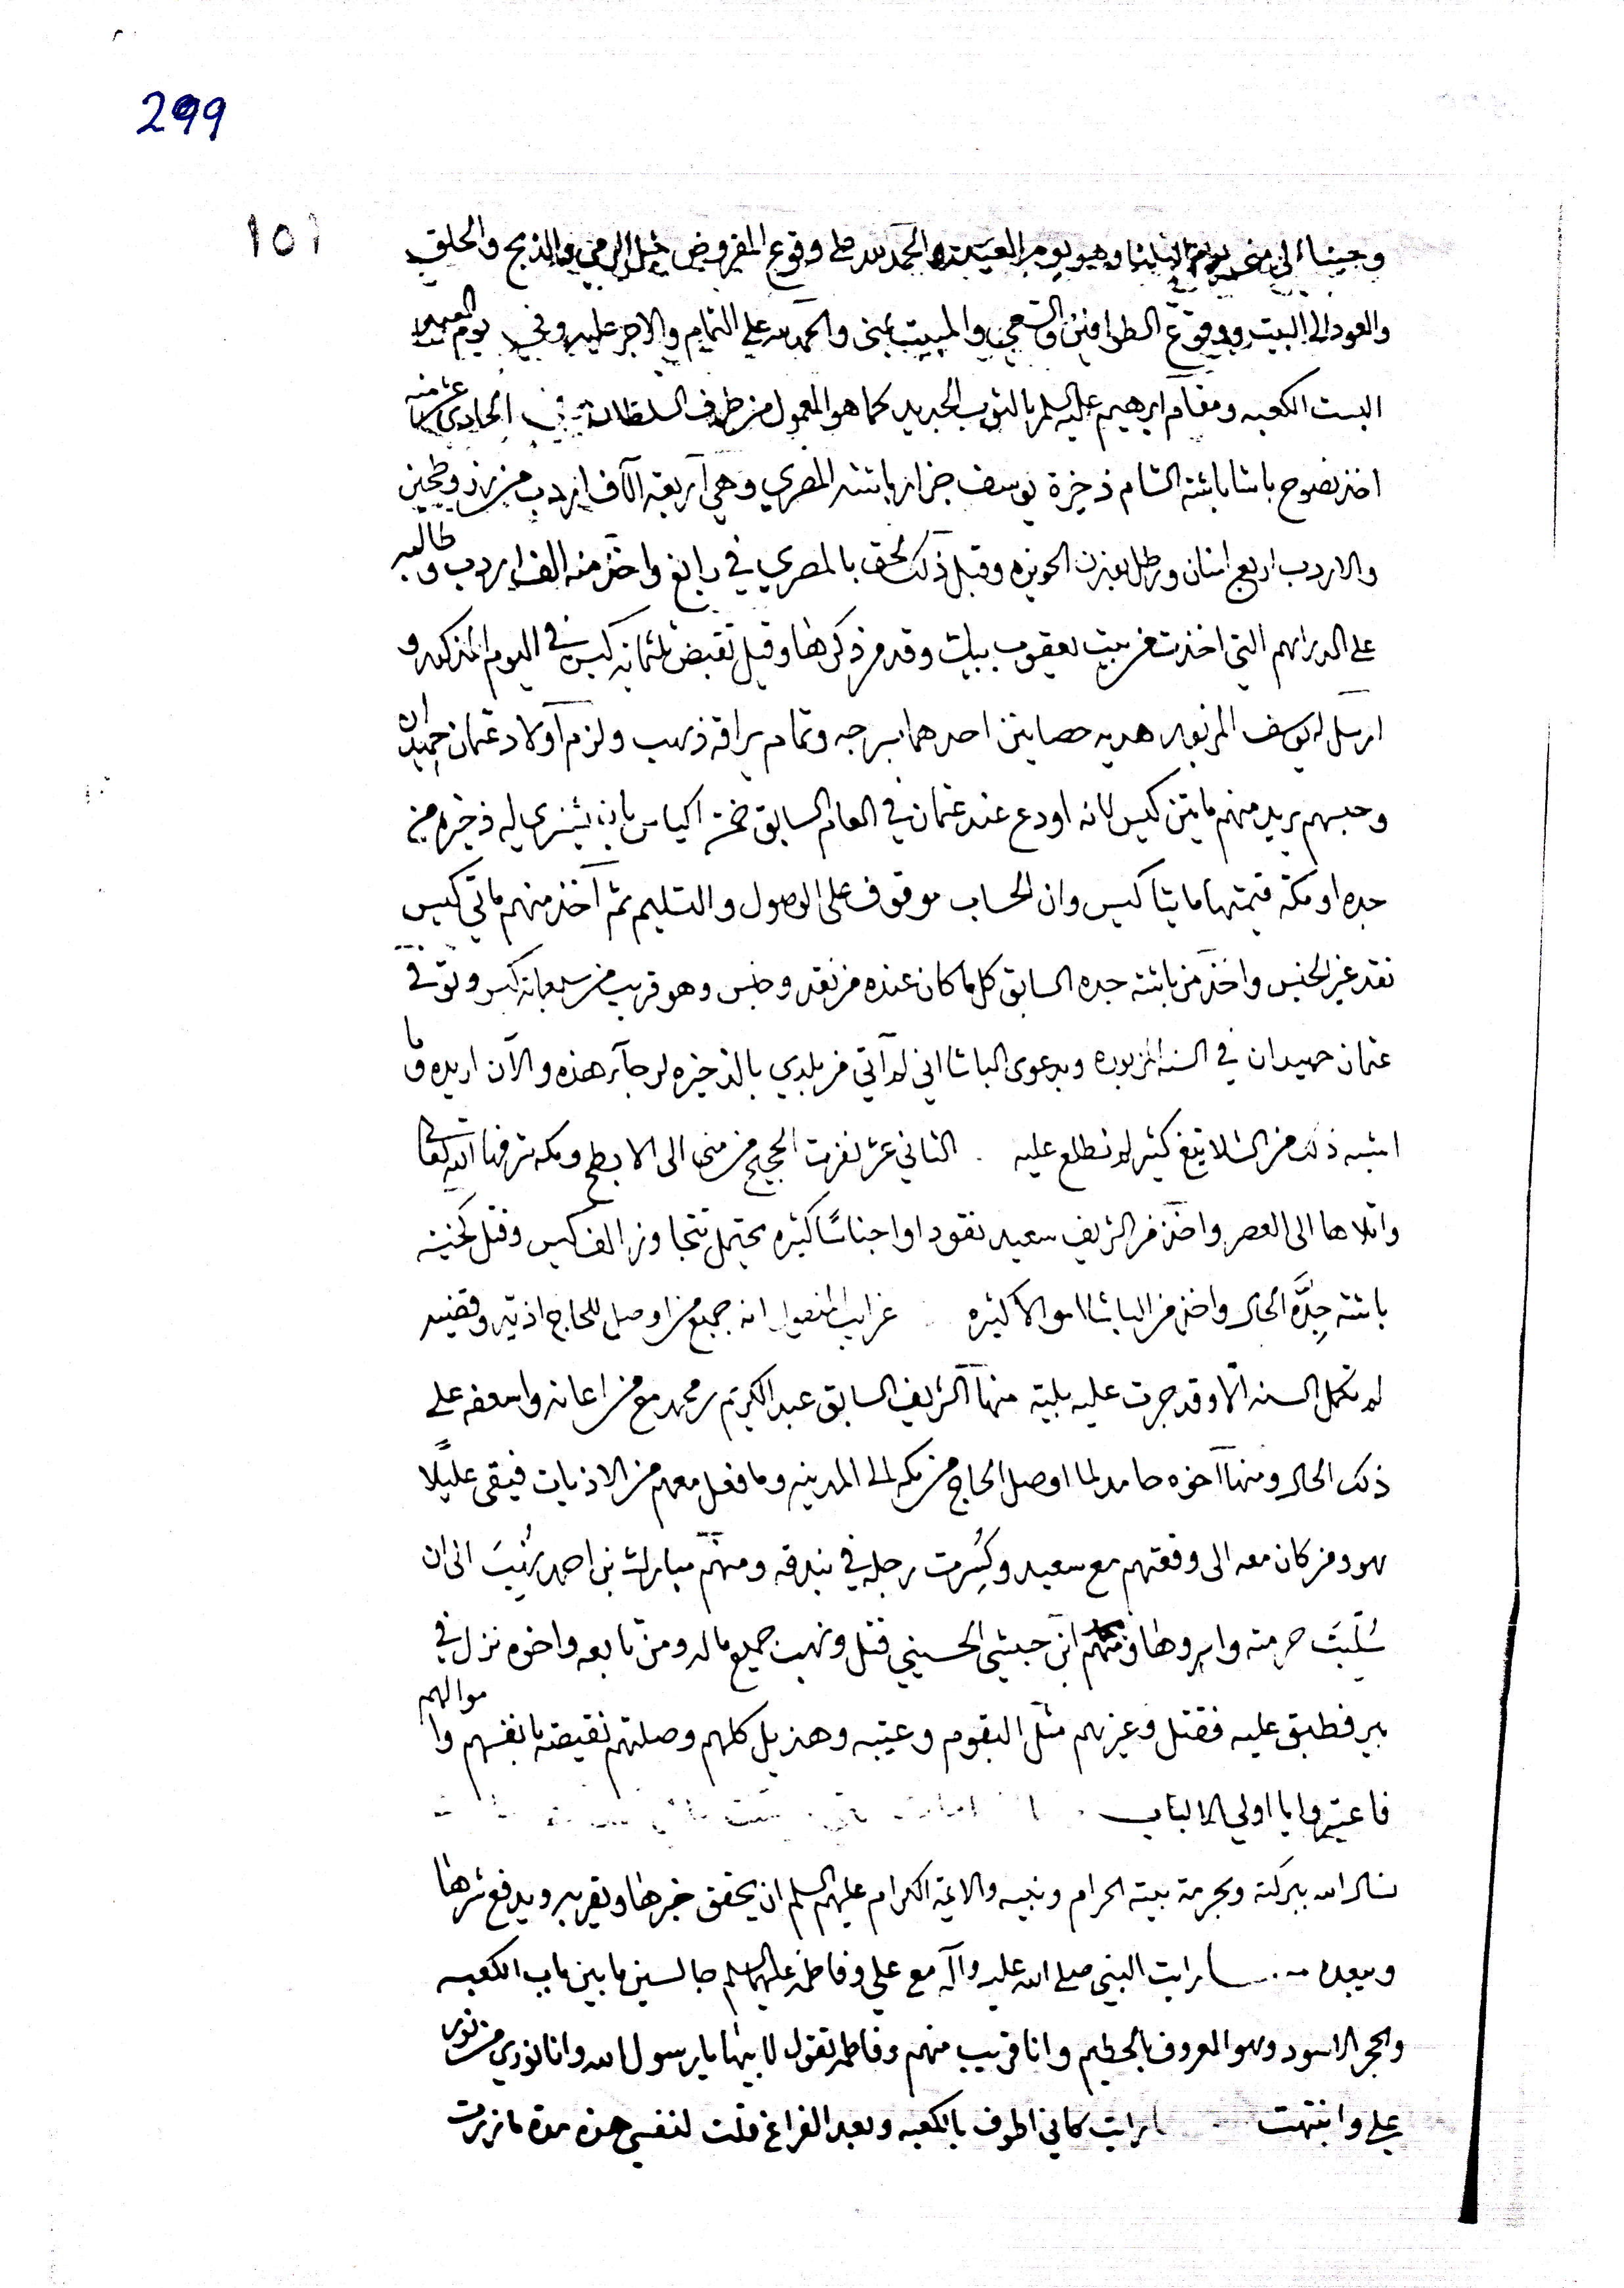 299
١٥١
وجينا الى منى يوم الثلثا وهو يوم العيد والحمد لله على وقوع المفروض مثل الرمي والذبح والحلق
والعود الى البيت ووقوع الطوافين والسعي والمبيت بمنى والحمد لله على التمام والاجر عليه وفي يوم العيد
البست الكعبه ومقام ابرهيم عليه السلم بالثوب الجديد كما هو المعمول من طرف السلطان في الحادي عشر منه
اخذ نصوح باشا باشة الشام ذخيرة يوسف جزار باشة المصري وهي اربعة الآف اردب من رز وطحين
والاردب اربع امنان ورطل بوزن الحويزه وقبل ذلك لحق بالمصري في رابغ واخذ منه الف اردب وطالبه
على الدراهم التي اخذت من بيت يعقوب بيك وقد مر ذكرها وقيل تقبض ثلثمائه كيس في اليوم المذكور و
ارسل له يوسف المزبور هديه حصانين احدهما بسرجه وتمام يراقه ذهب ولزم اولاد عثمان حميدان
وحبسهم يريد منهم مايتين كيس لانه اودع عند عثمان في العام السابق خمسة اكياس بان يشتري له ذخيره من
جده او مكة قيمتها مايتا كيس وان الحساب موقوف على الوصول والتسليم ثم آخذ منهم ماتي كيس
نقد غير الجنس واخذ من باشة جده السابق كل ما كان عنده من نقد وجنس وهو قريب من سبعمائه كيس وتوفي
عثمان حميدان في السنه المزبوره وبدعوى الباشا اني لم آتي من بلدي بالذخيره لرجآء هذه والآن اريده وما
اشبه ذلك من الشلايتغ كثير لم نطلع عليه . الثاني عشر نفرت الحجيج من منى الى الابطح ومكه شرفها الله تعالى
واتلاها الى العصر واخذ من الشريف سعيد نقودا واجناسًا كثيره يحتمل تتجاوز الف كيس وقتل كخية
باشة جِدَّه الحال واخذ من الباشا اموالا كثيره . غرايب المنقول انه جميع من اوصل للحاج اذيته وقضيه
لم تكمل السنه الا وقد جرت عليه بلية منها الشريف السابق عبد الكريم بن محمد مع من اعانه واسعفه على
ذلك الحال ومنها آخوه حامد لما اوصل الحاج من مكه الى المدينه وما فعل معهم من الاذيات فبقى عليلًا
هو ومن كان معه الى وقعتهم مع سعيد وكُسِرت رجله في بندقه ومنهم مبارك بن احمد نُهِبَ الى ان
سُلِبَتَ حرمته وابروها ومنهم ابن حبشي الحسيني قتل ونهب جميع ماله ومن تابعه واخوه نزل في
بير فطبق عليه فقتل وغيرهم مثل البقوم وعتيبه وهذيل كلهم وصلتهم نقيضة بانفسهم واموالهم
فاعتبروا يا اولي الالباب
نسال الله ببركته وبحرمة بيته الحرام ونبيه والائمة الكرام عليهم السلم ان يحقق خيرها ويقربه ويدفع شرها
ويبعده رايت النبي صلى الله عليه وآله مع علي وفاطمه عليهما السلم جالسين ما بين باب الكعبه
والحجر الاسود وهو المعروف بالحطيم وانا قريب منهم وفاطمه تقول لابيها يا رسول الله وانا نوري من نور
علي وانتبهت رايت كاني اطوف بالكعبه وبعد الفراغ قلت لنفسي هذه مدة ما زرت